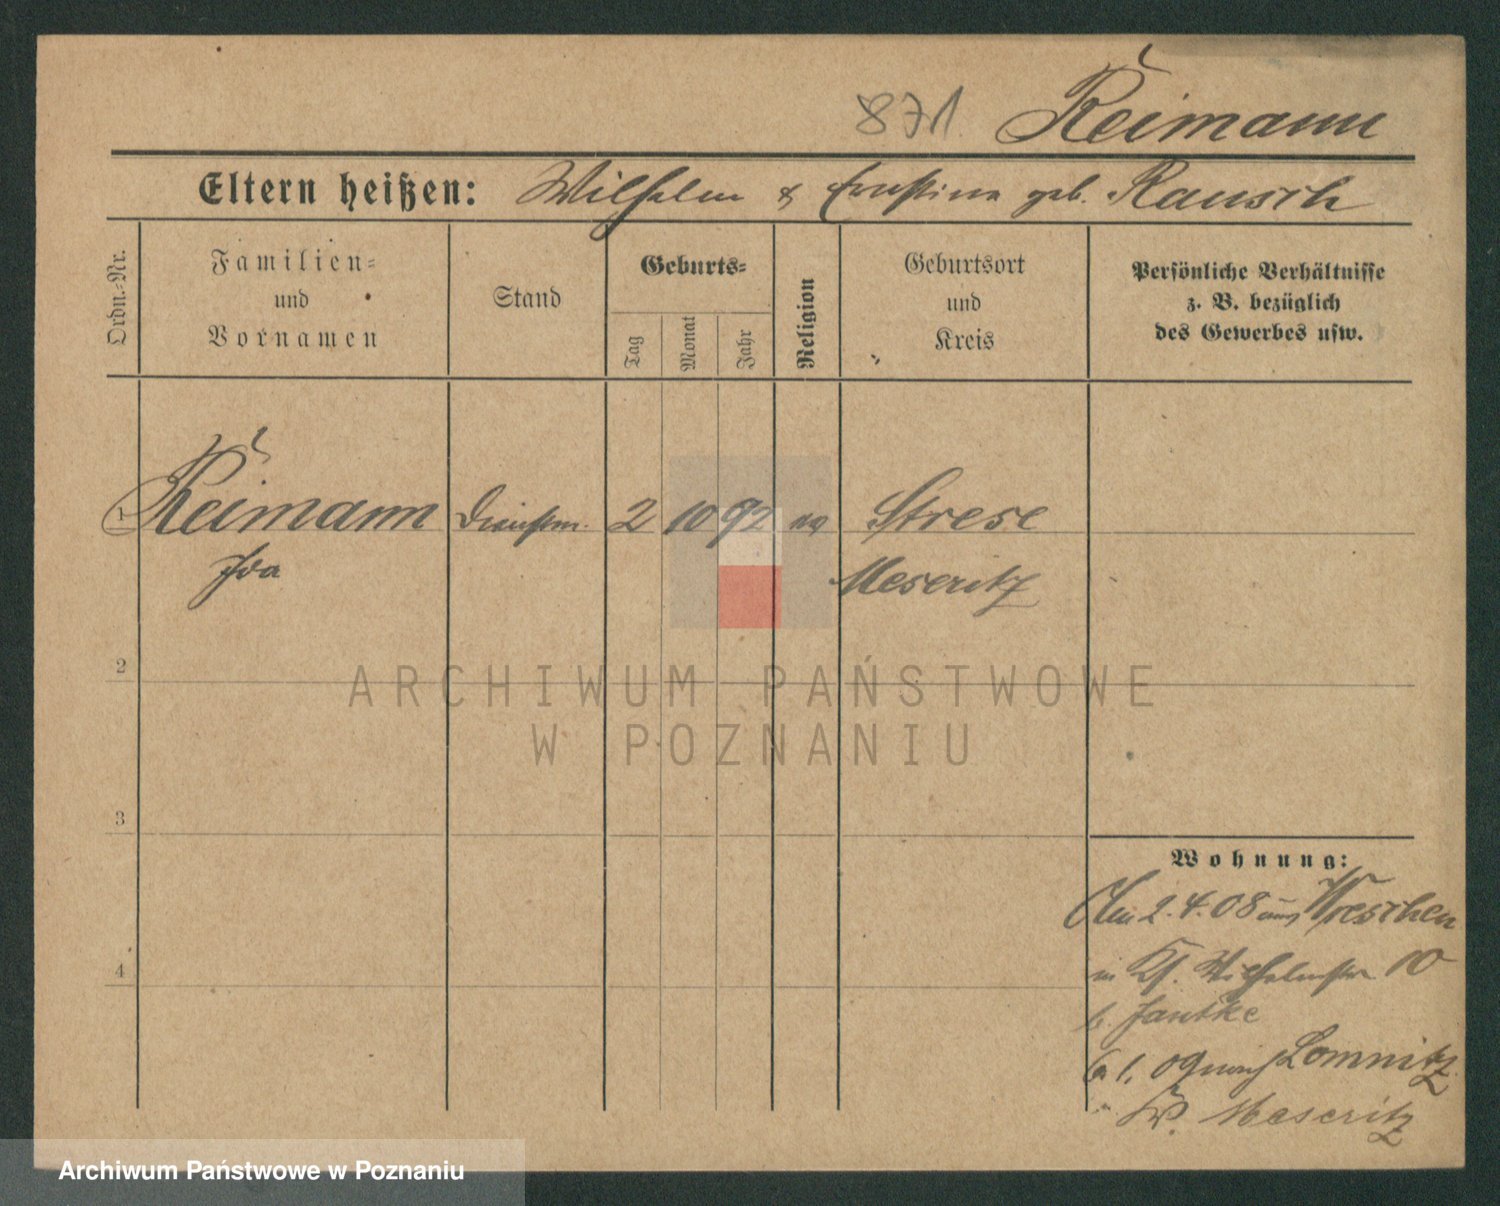 871 Reimann
Eltern heißen: Wilhelm & Ernstina geb. Rausch
Ordn.-Nr.
Familien-
und
Vornamen
Stand
Geburts-
Tag
Monat
Jahr
Religion
Geburtsort
und
Kreis
Persönliche Verhältnisse
z. B. bezüglich
des Gewerbes usw.
1 Reimann Dienstm. 2 10 92 Strese
Ida Meseritz
2
ARCHIWUM PAŃSTWOWE
W POZNANIU
3
Wohnung:
2.4.08 aus Wreschen
4
in Wilhelmstr 10
b. Jantke
1.09 nach Lomnitz
Kr. Meseritz
Archiwum Państwowe w Poznaniu